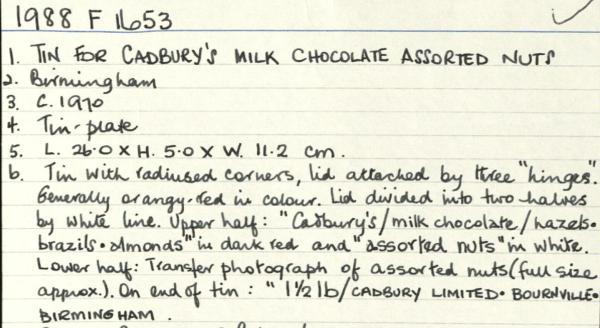 1988 F 1653
1. TIN FOR CADBURY'S MILK CHOCOLATE ASSORTED NUTS
2. Birmingham
3. C. 1970
4. Tin-plate
5. L. 26.0 x H. 5.0 x W. 11.2 cm.
6. Tin with radiused corners, lid attached by three "hinges".
Generally orangy-red in colour. Lid divided into two halves
by white line. Upper half: "Cadbury's/milk chocolate/hazels•
brazils•almonds" in dark red and "assorted nuts" in white.
Lower half: Transfer photograph of assorted nuts (full size
approx.). On end of tin: "1½ lb/CADBURY LIMITED• BOURNVILLE•
BIRMINGHAM.